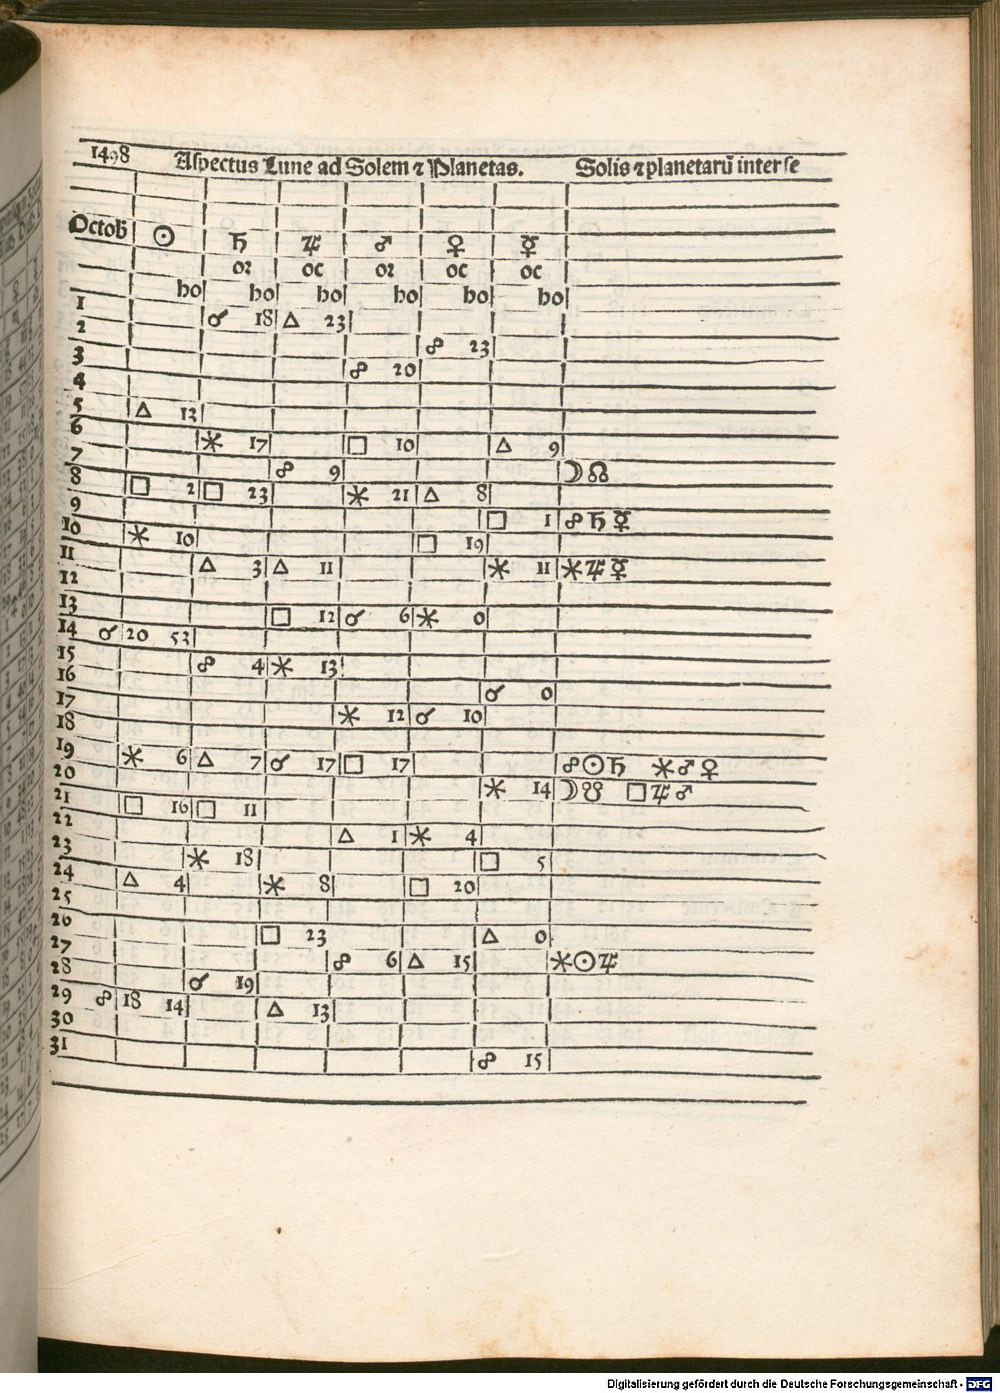 1498 Aspectus Lune ad Solem ⁊ Planetas. Solis ⁊ planetarū inter se
Octob ☉ ♄ ♃ ♂ ♀ ☿
oꝛ oc oꝛ oc oc
ho ho ho ho ho ho
1 ☌ 18 △ 23
2 ☍ 23
3 ☍ 20
4
5 △ 12
6 ⚹ 17 □ 10 △ 9
7 ☍ 9 ☽ ☊
8 □ 2 □ 23 ⚹ 21 △ 8
9 □ 1 ☍ ♄ ☿
10 ⚹ 10 □ 19
11 △ 3 △ 11 ⚹ 11 ⚹ ♃ ☿
12
13 □ 12 ☌ 6 ⚹ 0
14 ☌ 20 53
15 ☍ 4 ⚹ 13
16 ☌ 0
17 ⚹ 12 ☌ 10
18
19 ⚹ 6 △ 7 ☌ 17 □ 17 ☍ ☉ ♄ ⚹ ♂ ♀
20 ⚹ 14 ☽ ☋ □ ♃ ♂
21 □ 16 □ 11
22 △ 1 ⚹ 4
23 ⚹ 18 □ 5
24 △ 4 ⚹ 8 □ 20
25
26 □ 23 △ 0
27 ☍ 6 △ 15 ⚹ ☉ ♃
28 ☌ 19
29 ☍ 18 14 △ 13
30
31 ☍ 15
Digitalisierung gefördert durch die Deutsche Forschungsgemeinschaft - DFG